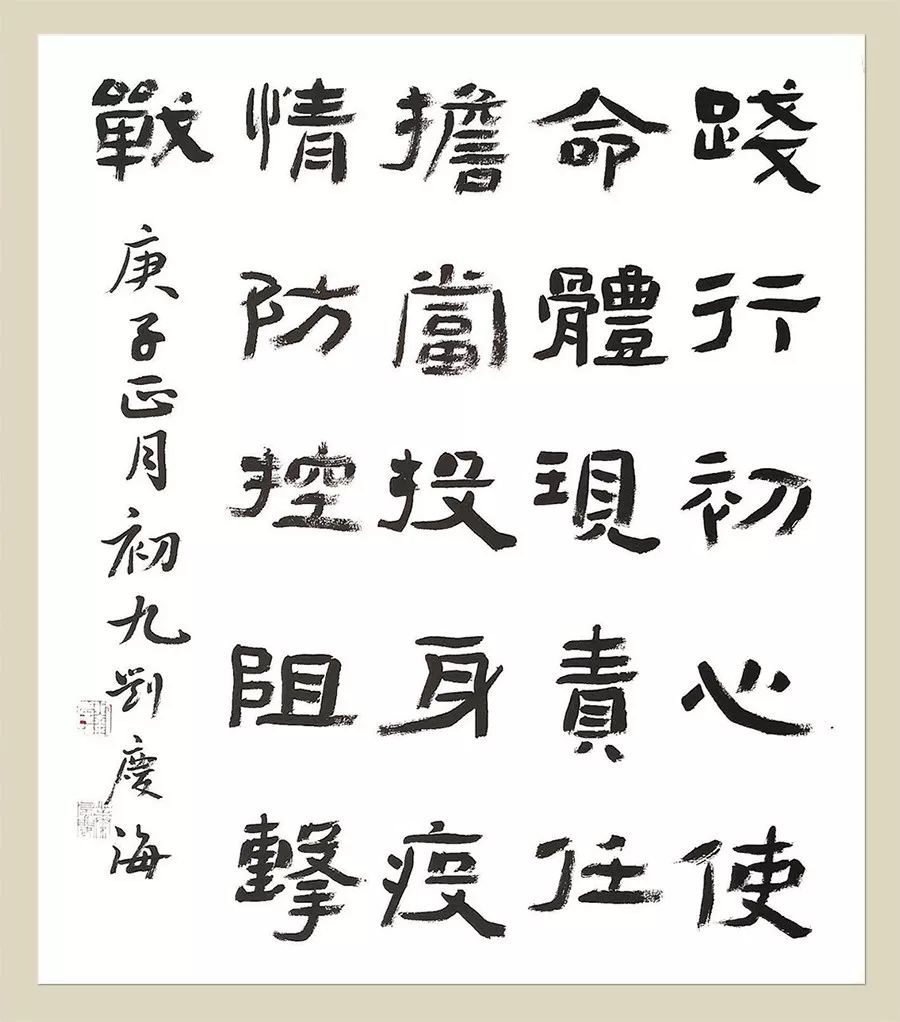 踐行初心使
命體現責任
擔當投身疫
情防控阻擊
戰
庚子正月初九劉慶海